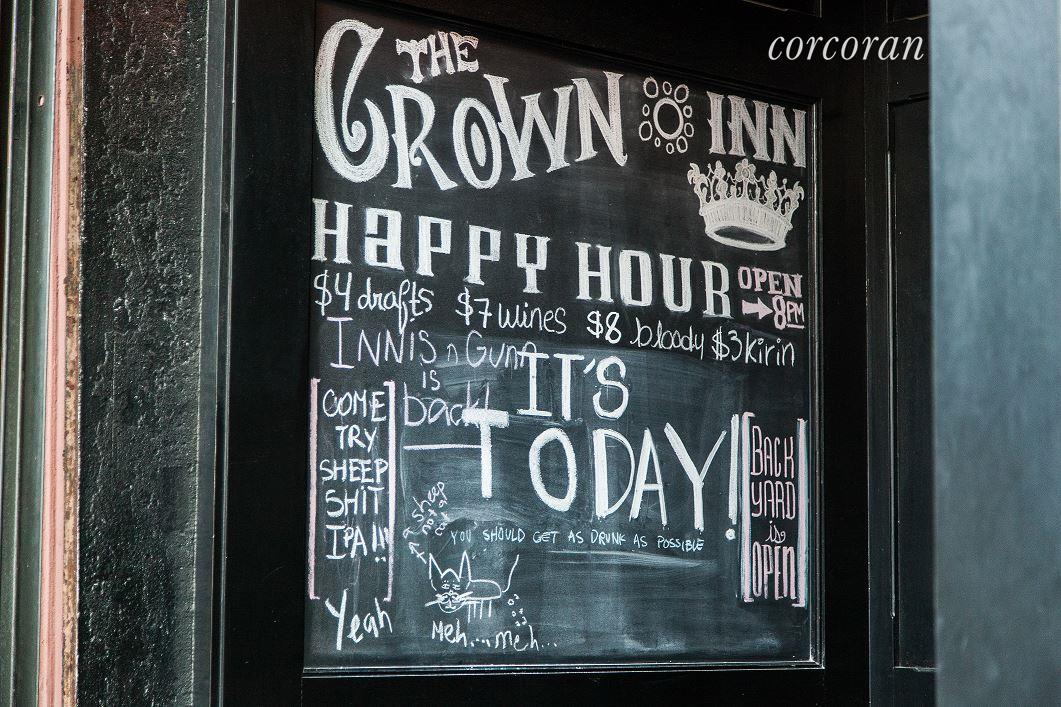 corcoran
THE
CROWN INN
HAPPY HOUR
OPEN
8PM
$4 drafts $7 wines $8 bloody $3 kirin
INNIS n GUNN
IS
back!
IT'S
TODAY!
COME
TRY
SHEEP
SHIT
IPA!!!
Yeah
A sheep
not a
YOU SHOULD GET AS DRUNK AS POSSIBLE
Meh... meh...
BACK
YARD
is
OPEN